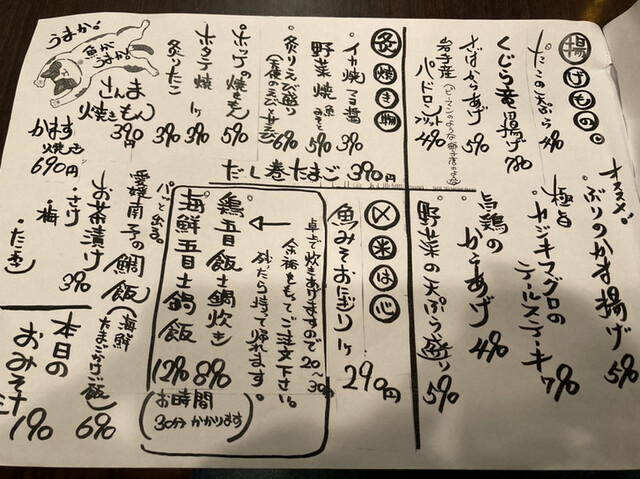 揚げもの。
たこの天ぷら 490
くじら竜田揚げ 790
さばからあげ 590
岩手産(ピーマンのような獅子唐のような)
パドロンフリット 490
オススメ。
ぶりのカマ揚げ 590
極旨
カジキマグロの
テールステーキ 790
鳥鶏の
からあげ 490
野菜の天ぷら盛り 590
炙焼き物
イカ焼マヨ醤 390
野菜焼 魚みそと 590
炙りえび盛り 690
(天使のえび
ホッケの焼きもん 590
ホタテ焼 1ヶ 390
炙りたこ 390
さんま
焼きもん
390円
かます
焼き
690円
うまかぁ。
魚が
うまかぁ
だし巻たまご 390円
〆米は心
魚みそおにぎり 1ヶ 290円
卓上で炊きあげますので20〜30分。
余裕をもってご注文下さい。
残ったら持って帰れます。
鶏五目飯土鍋炊き 890
海鮮五目土鍋飯 1290
(お時間
30分かかります)
パッと出る。
愛媛南予の鯛飯(海鮮
たまごかけご飯) 690
お茶漬け 390
・さけ
・梅
・たこわさ
本日の
おみそ汁 190